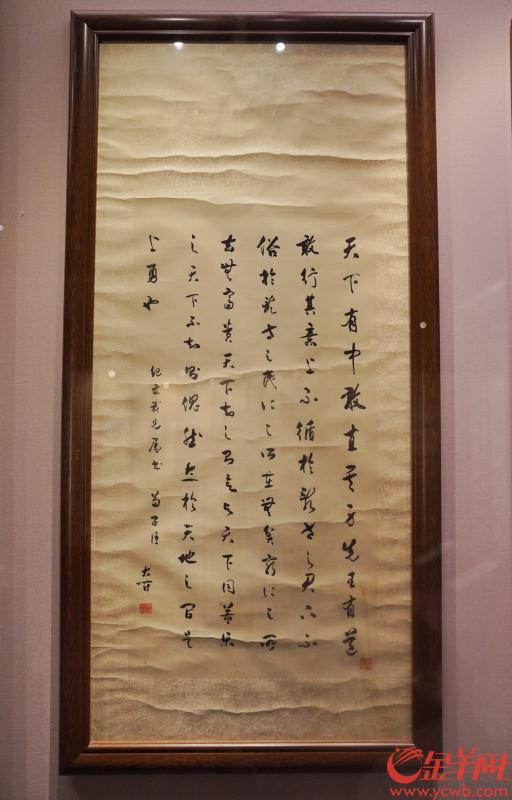 天下有中敢直其身先王有道
敢行其意上不循於亂世之君下不
俗於亂世之民仁之所在無貧窮仁之所
無富貴天下知之與天下同苦樂
之天下不知則傀然立於天地之間是
上勇也
紀文我兄屬書 荀子語
金羊网
www.ycwb.com